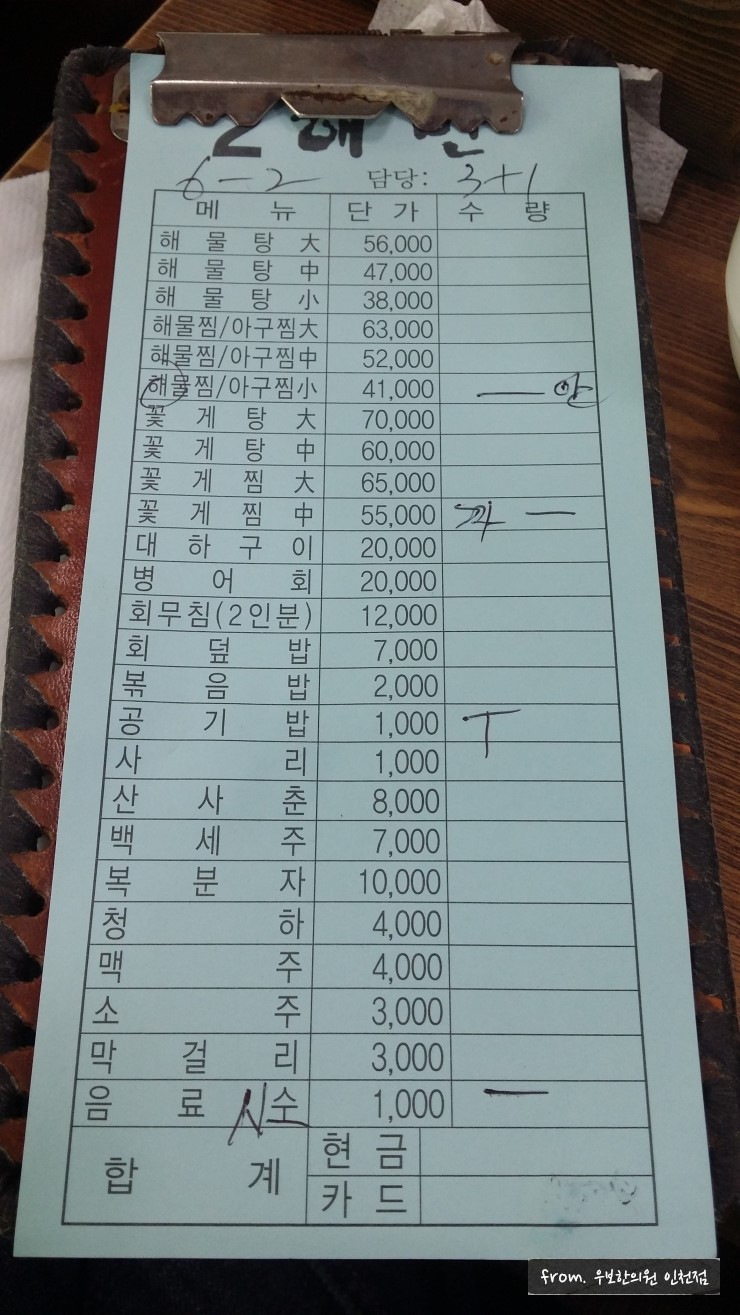 6-2 담당: 3+1
메뉴 단가 수량
해물탕大 56,000
해물탕中 47,000
해물탕小 38,000
해물찜/아구찜大 63,000
해물찜/아구찜中 52,000
해물찜/아구찜小 41,000 — 안
꽃게탕大 70,000
꽃게탕中 60,000
꽃게찜大 65,000
꽃게찜中 55,000 —
대하구이 20,000
병어회 20,000
회무침(2인분) 12,000
회덮밥 7,000
볶음밥 2,000
공기밥 1,000 T
사리 1,000
산사춘 8,000
백세주 7,000
복분자 10,000
청하 4,000
맥주 4,000
소주 3,000
막걸리 3,000
음료수 1,000 —
합계 현금
카드
from. 우보한의원 인천점